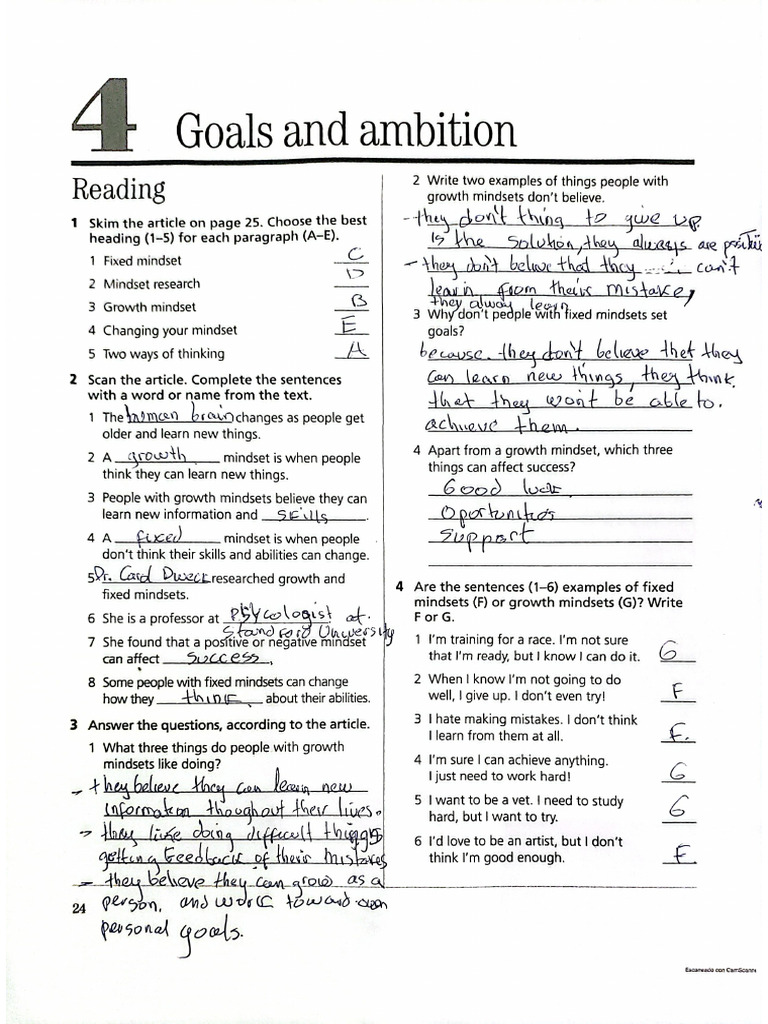 4 Goals and ambition
Reading
1 Skim the article on page 25. Choose the best
heading (1–5) for each paragraph (A–E).
1 Fixed mindset C
2 Mindset research D
3 Growth mindset B
4 Changing your mindset E
5 Two ways of thinking A
2 Scan the article. Complete the sentences
with a word or name from the text.
1 The human brain changes as people get
older and learn new things.
2 A growth mindset is when people
think they can learn new things.
3 People with growth mindsets believe they can
learn new information and skills.
4 A fixed mindset is when people
don't think their skills and abilities can change.
5 Dr. Carol Dweck researched growth and
fixed mindsets.
6 She is a professor at psycologist at
Standford University
7 She found that a positive or negative mindset
can affect success.
8 Some people with fixed mindsets can change
how they think about their abilities.
3 Answer the questions, according to the article.
1 What three things do people with growth
mindsets like doing?
- they believe they can learn new
information thoughout their lives.
- they like doing difficult things
getting feedback of their mistakes
- they believe they can grow as a
person, and work toward own
personal goals.
24
2 Write two examples of things people with
growth mindsets don't believe.
- they don't thing to give up
is the solution, they always are positive
- they don't believe that they can't
learn from theirs mistake,
they alway learn
3 Why don't people with fixed mindsets set
goals?
because they don't believe thet they
can learn new things, they think
that they won't be able to.
achieve them.
4 Apart from a growth mindset, which three
things can affect success?
Good luck
Oportunities
Support
4 Are the sentences (1–6) examples of fixed
mindsets (F) or growth mindsets (G)? Write
F or G.
1 I'm training for a race. I'm not sure
that I'm ready, but I know I can do it. G
2 When I know I'm not going to do
well, I give up. I don't even try! F
3 I hate making mistakes. I don't think
I learn from them at all. F.
4 I'm sure I can achieve anything.
I just need to work hard! G
5 I want to be a vet. I need to study
hard, but I want to try. G
6 I'd love to be an artist, but I don't
think I'm good enough. F
Escaneado con CamScanner